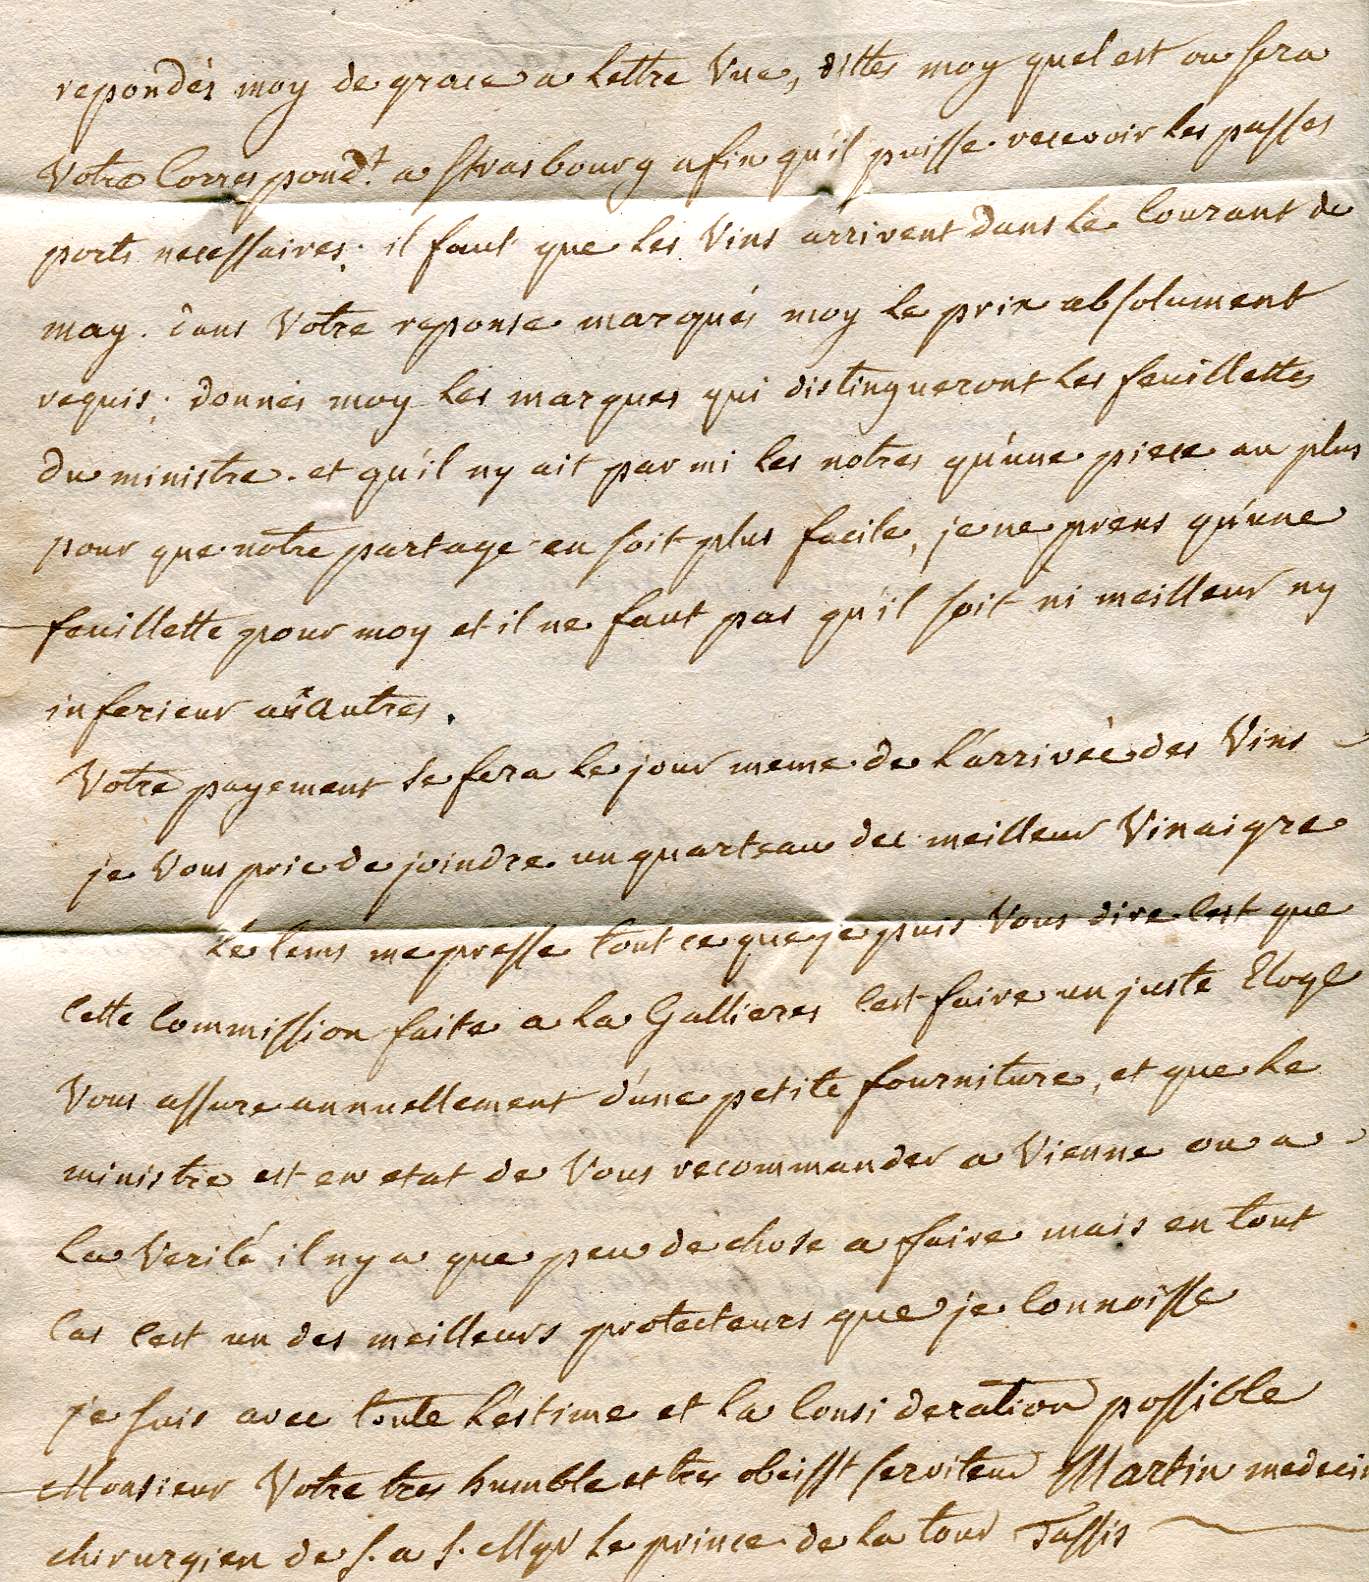 repondés moy de grace a lettre Vue, dittes moy quel est ou sera
Votre Correspondt. a strasbourg afin qu'il puisse recevoir les passes
ports necessaires; il faut que les Vins arrivent dans le Courant de
may. dans Votre reponse marqués moy le prix absolument
requis; donnés moy les marques qui distingueront les feuillettes
du ministre. et qu'il ny ait parmi les notres qu'une piece au plus
pour que notre partage en soit plus facile, je ne prens qu'une
feuillette pour moy et il ne faut pas qu'il soit ni meilleur ny
inferieur aux autres.
Votre payement se fera le jour meme de l'arrivée des Vins
je Vous prie de joindre un quarteau de meilleur Vinaigre
Le tems me presse tout ce que je puis Vous dire Cest que
Cette Commission faite a la Gallieres Cest faire un juste Eloge
Vous assure annuellement d'une petite fourniture, et que le
ministre est en etat de Vous recommander a Vienne ou a
la Verité il ny a que peu de chose a faire mais en tout
Cas Cest un des meilleurs protecteurs que je Connoisse
je suis avec toute l'estime et la Consideration possible
Monsieur Votre tres humble et tres obeisst serviteur Martin medecin
chirurgien de s. a s. Mgr le prince de la tour Tassis